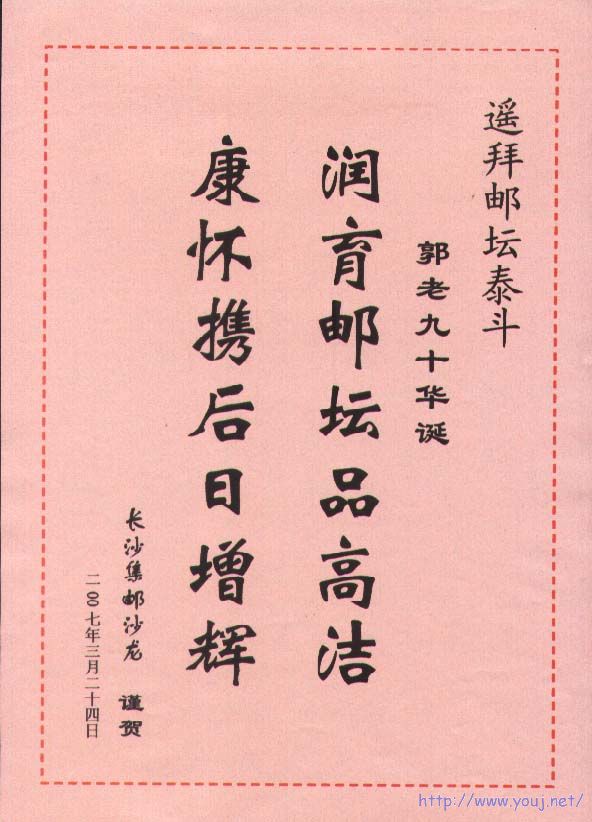 遥拜邮坛泰斗
郭老九十华诞
润育邮坛品高洁
康怀携后日增辉
长沙集邮沙龙 谨贺
二00七年三月二十四日
http://www.youj.net/